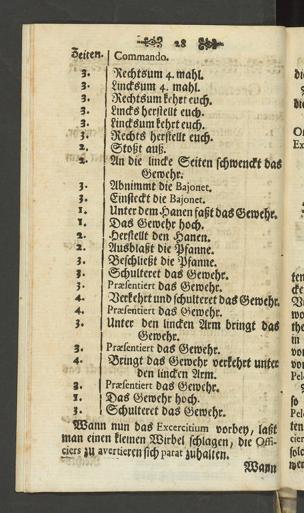 28
Zeiten. Commando.
3. Rechtsum 4. mahl.
3. Lincksum 4. mahl.
3. Rechtsum kehrt euch.
3. Lincks herstellt euch.
3. Lincksum kehrt euch.
3. Rechts herstellt euch.
2. Stoßt auß.
2. An die lincke Seiten schwenckt das
Gewehr.
3. Abnimmt die Bajonet.
3. Einsteckt die Bajonet.
1. Unter dem Hanen faßt das Gewehr.
1. Das Gewehr hoch.
2. Herstellt den Hanen.
2. Ausblaßt die Pfanne.
3. Beschließt die Pfanne.
3. Schulteret das Gewehr.
3. Præsentiert das Gewehr.
4. Verkehrt und schulteret das Gewehr.
4. Præsentiert das Gewehr.
3. Unter den lincken Arm bringt das
Gewehr.
3. Præsentiert das Gewehr.
4. Bringt das Gewehr verkehrt unter
den lincken Arm.
3. Præsentiert das Gewehr.
1. Das Gewehr hoch.
3. Schulteret das Gewehr.
Wann nun das Excercitium vorbey, laßt
man einen kleinen Wirbel schlagen, die Offi-
ciers zu avertieren sich parat zuhalten.
Wann